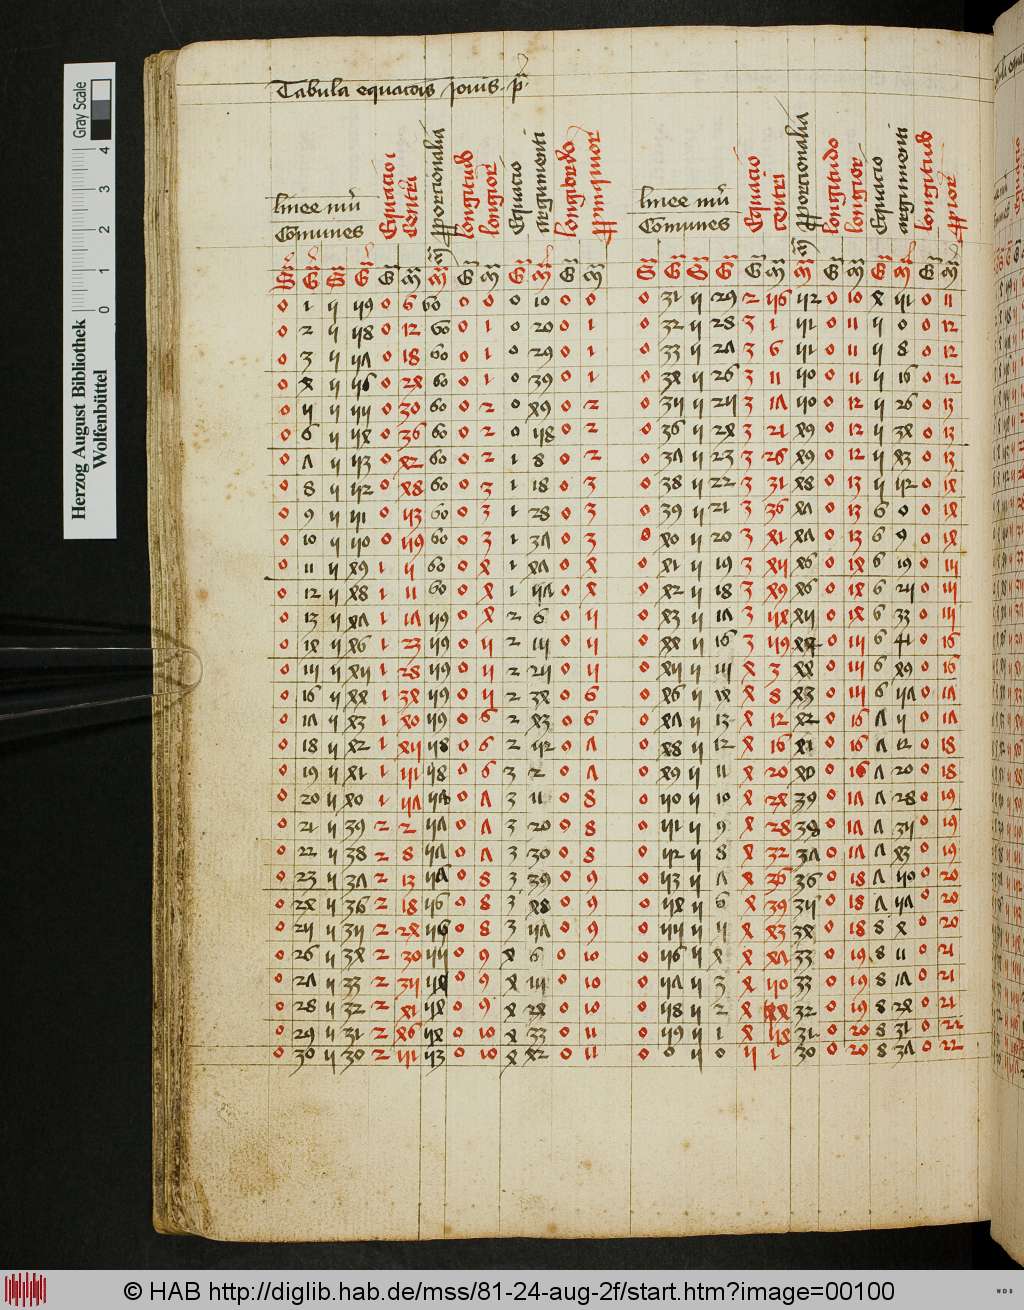 Tabula equacois Jovis p
linee nui
Comunes
Equacio
centri
proporcionalia
longitudo
longior
Equacio
argumenti
longitudo
propinquior
linee nui
Comunes
Equacio
centri
proporcionalia
longitudo
longior
Equacio
argumenti
longitudo
propior
0 1 5 59 0 6 60 0 0 0 10 0 0 0 31 5 29 2 56 52 0 10 4 51 0 11
0 2 5 58 0 12 60 0 1 0 20 0 1 0 32 5 28 3 1 51 0 11 5 0 0 12
0 3 5 57 0 18 60 0 1 0 29 0 1 0 33 5 27 3 6 51 0 11 5 8 0 12
0 4 5 56 0 24 60 0 1 0 39 0 1 0 34 5 26 3 11 50 0 11 5 16 0 12
0 5 5 55 0 30 60 0 2 0 49 0 2 0 35 5 25 3 17 50 0 12 5 26 0 13
0 6 5 54 0 36 60 0 2 0 58 0 2 0 36 5 24 3 21 49 0 12 5 34 0 13
0 7 5 53 0 42 60 0 2 1 8 0 2 0 37 5 23 3 26 49 0 12 5 43 0 13
0 8 5 52 0 48 60 0 3 1 18 0 3 0 38 5 22 3 31 48 0 13 5 52 0 14
0 9 5 51 0 53 60 0 3 1 28 0 3 0 39 5 21 3 36 47 0 13 6 0 0 14
0 10 5 50 0 59 60 0 3 1 37 0 3 0 40 5 20 3 41 47 0 13 6 9 0 14
0 11 5 49 1 5 60 0 4 1 47 0 4 0 41 5 19 3 45 46 0 14 6 19 0 15
0 12 5 48 1 11 60 0 4 1 57 0 4 0 42 5 18 3 49 46 0 14 6 25 0 15
0 13 5 47 1 17 59 0 4 2 6 0 5 0 43 5 17 3 54 45 0 14 6 33 0 15
0 14 5 46 1 23 59 0 5 2 15 0 5 0 44 5 16 3 59 44 0 15 6 41 0 16
0 15 5 45 1 28 59 0 5 2 25 0 5 0 45 5 15 4 3 44 0 15 6 49 0 16
0 16 5 44 1 34 59 0 5 2 34 0 6 0 46 5 14 4 8 43 0 15 6 57 0 17
0 17 5 43 1 40 59 0 6 2 43 0 6 0 47 5 13 4 12 42 0 16 7 5 0 17
0 18 5 42 1 45 58 0 6 2 52 0 7 0 48 5 12 4 16 41 0 16 7 12 0 18
0 19 5 41 1 51 58 0 6 3 2 0 7 0 49 5 11 4 20 40 0 16 7 20 0 18
0 20 5 40 1 57 58 0 7 3 11 0 8 0 50 5 10 4 24 39 0 17 7 28 0 19
0 21 5 39 2 2 57 0 7 3 20 0 8 0 51 5 9 4 28 38 0 17 7 35 0 19
0 22 5 38 2 8 57 0 7 3 30 0 8 0 52 5 8 4 32 37 0 17 7 43 0 19
0 23 5 37 2 13 57 0 8 3 39 0 9 0 53 5 7 4 36 36 0 18 7 50 0 20
0 24 5 36 2 18 56 0 8 3 48 0 9 0 54 5 6 4 39 35 0 18 7 57 0 20
0 25 5 35 2 24 56 0 8 3 57 0 9 0 55 5 5 4 43 34 0 18 8 4 0 20
0 26 5 34 2 30 55 0 9 4 6 0 10 0 56 5 4 4 47 33 0 19 8 11 0 21
0 27 5 33 2 35 54 0 9 4 15 0 10 0 57 5 3 4 50 33 0 19 8 17 0 21
0 28 5 32 2 41 54 0 9 4 24 0 10 0 58 5 2 4 54 32 0 19 8 24 0 21
0 29 5 31 2 46 54 0 10 4 33 0 11 0 59 5 1 4 58 31 0 20 8 31 0 22
0 30 5 30 2 51 53 0 10 4 42 0 11 0 0 5 0 5 1 30 0 20 8 37 0 22
Herzog August Bibliothek
Wolfenbüttel
0 1 2 3 4
Gray Scale
© HAB http://diglib.hab.de/mss/81-24-aug-2f/start.htm?image=00100